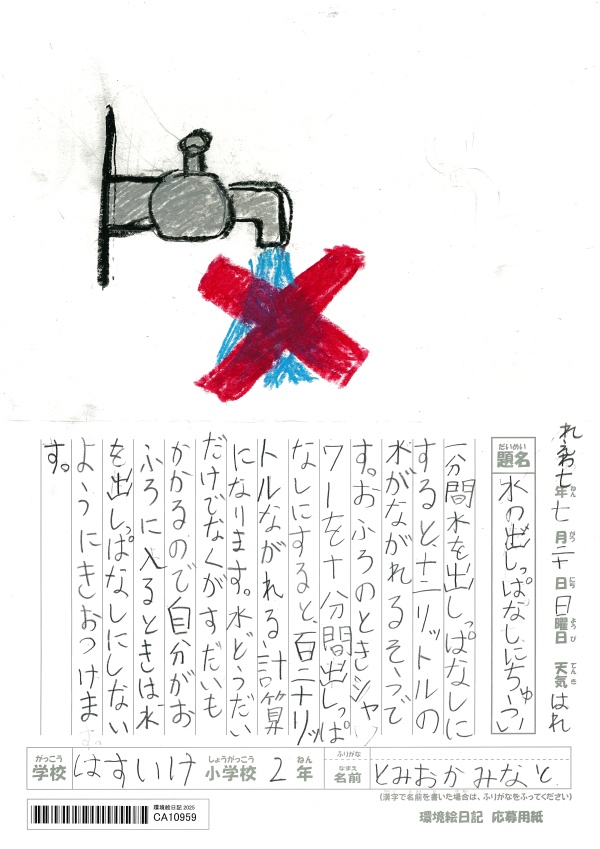 れえわ七年七月二十日日曜日 天気はれ
だいめい
題名 水の出しっぱなしにちゅうい
一分間水を出しっぱなしに
すると、十二リットルの
水がながれるそうで
す。おふろのときシャ
ワーを十分間出しっぱ
なしにすると、百二十リッ
トルながれる計算
になります。水どうだい
だけでなくガスだいも
かかるので自分がお
ふろに入るときは、水
を出しっぱなしにしない
ようにきおつけま
す。
がっこう しょうがっこう ねん なまえ ふりがな
学校 はすいけ 小学校 2年 名前 とみおかみなと
(漢字で名前を書いた場合は、ふりがなをふってください)
環境絵日記 応募用紙
環境絵日記 2025
CA10959